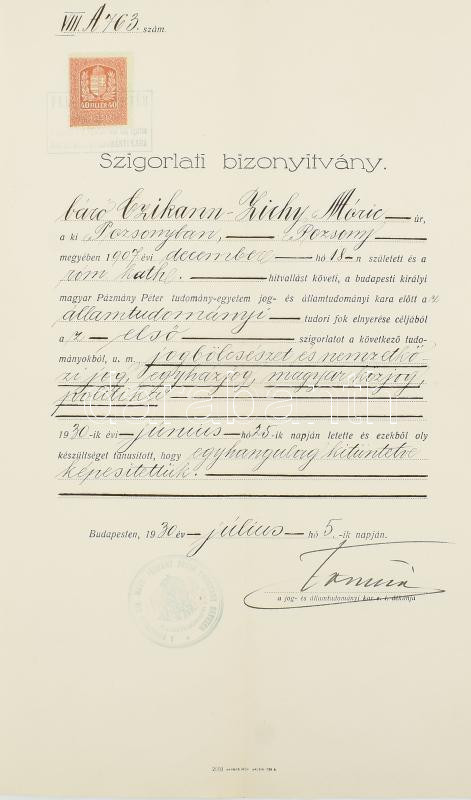 VIII. A 763. szám.
40 FILLÉR 40
Szigorlati bizonyitvány.
báró Czikann-Zichy Móric — úr,
a ki Pozsonyban, — Pozsony —
megyében 1907 évi december — hó 18-n született és a
róm kath. — hitvallást követi, a budapesti királyi
magyar Pázmány Péter tudomány-egyetem jog- és államtudományi kara előtt az
államtudományi — tudori fok elnyerése céljából
a z — első — szigorlatot a következő tudo-
mányokból, u. m. jogbölcsészet és nemzetkö-
zi jog, egyházjog, magyar közjog,
politika
darabanth
1930-ik évi — június — hó 25-ik napján letette és ezekből oly
készültséget tanusított, hogy egyhangulag kitüntetve
képesítettük.
Budapesten, 1930 év — július — hó 5.-ik napján.
a jog- és államtudományi kar e. i. dékánja